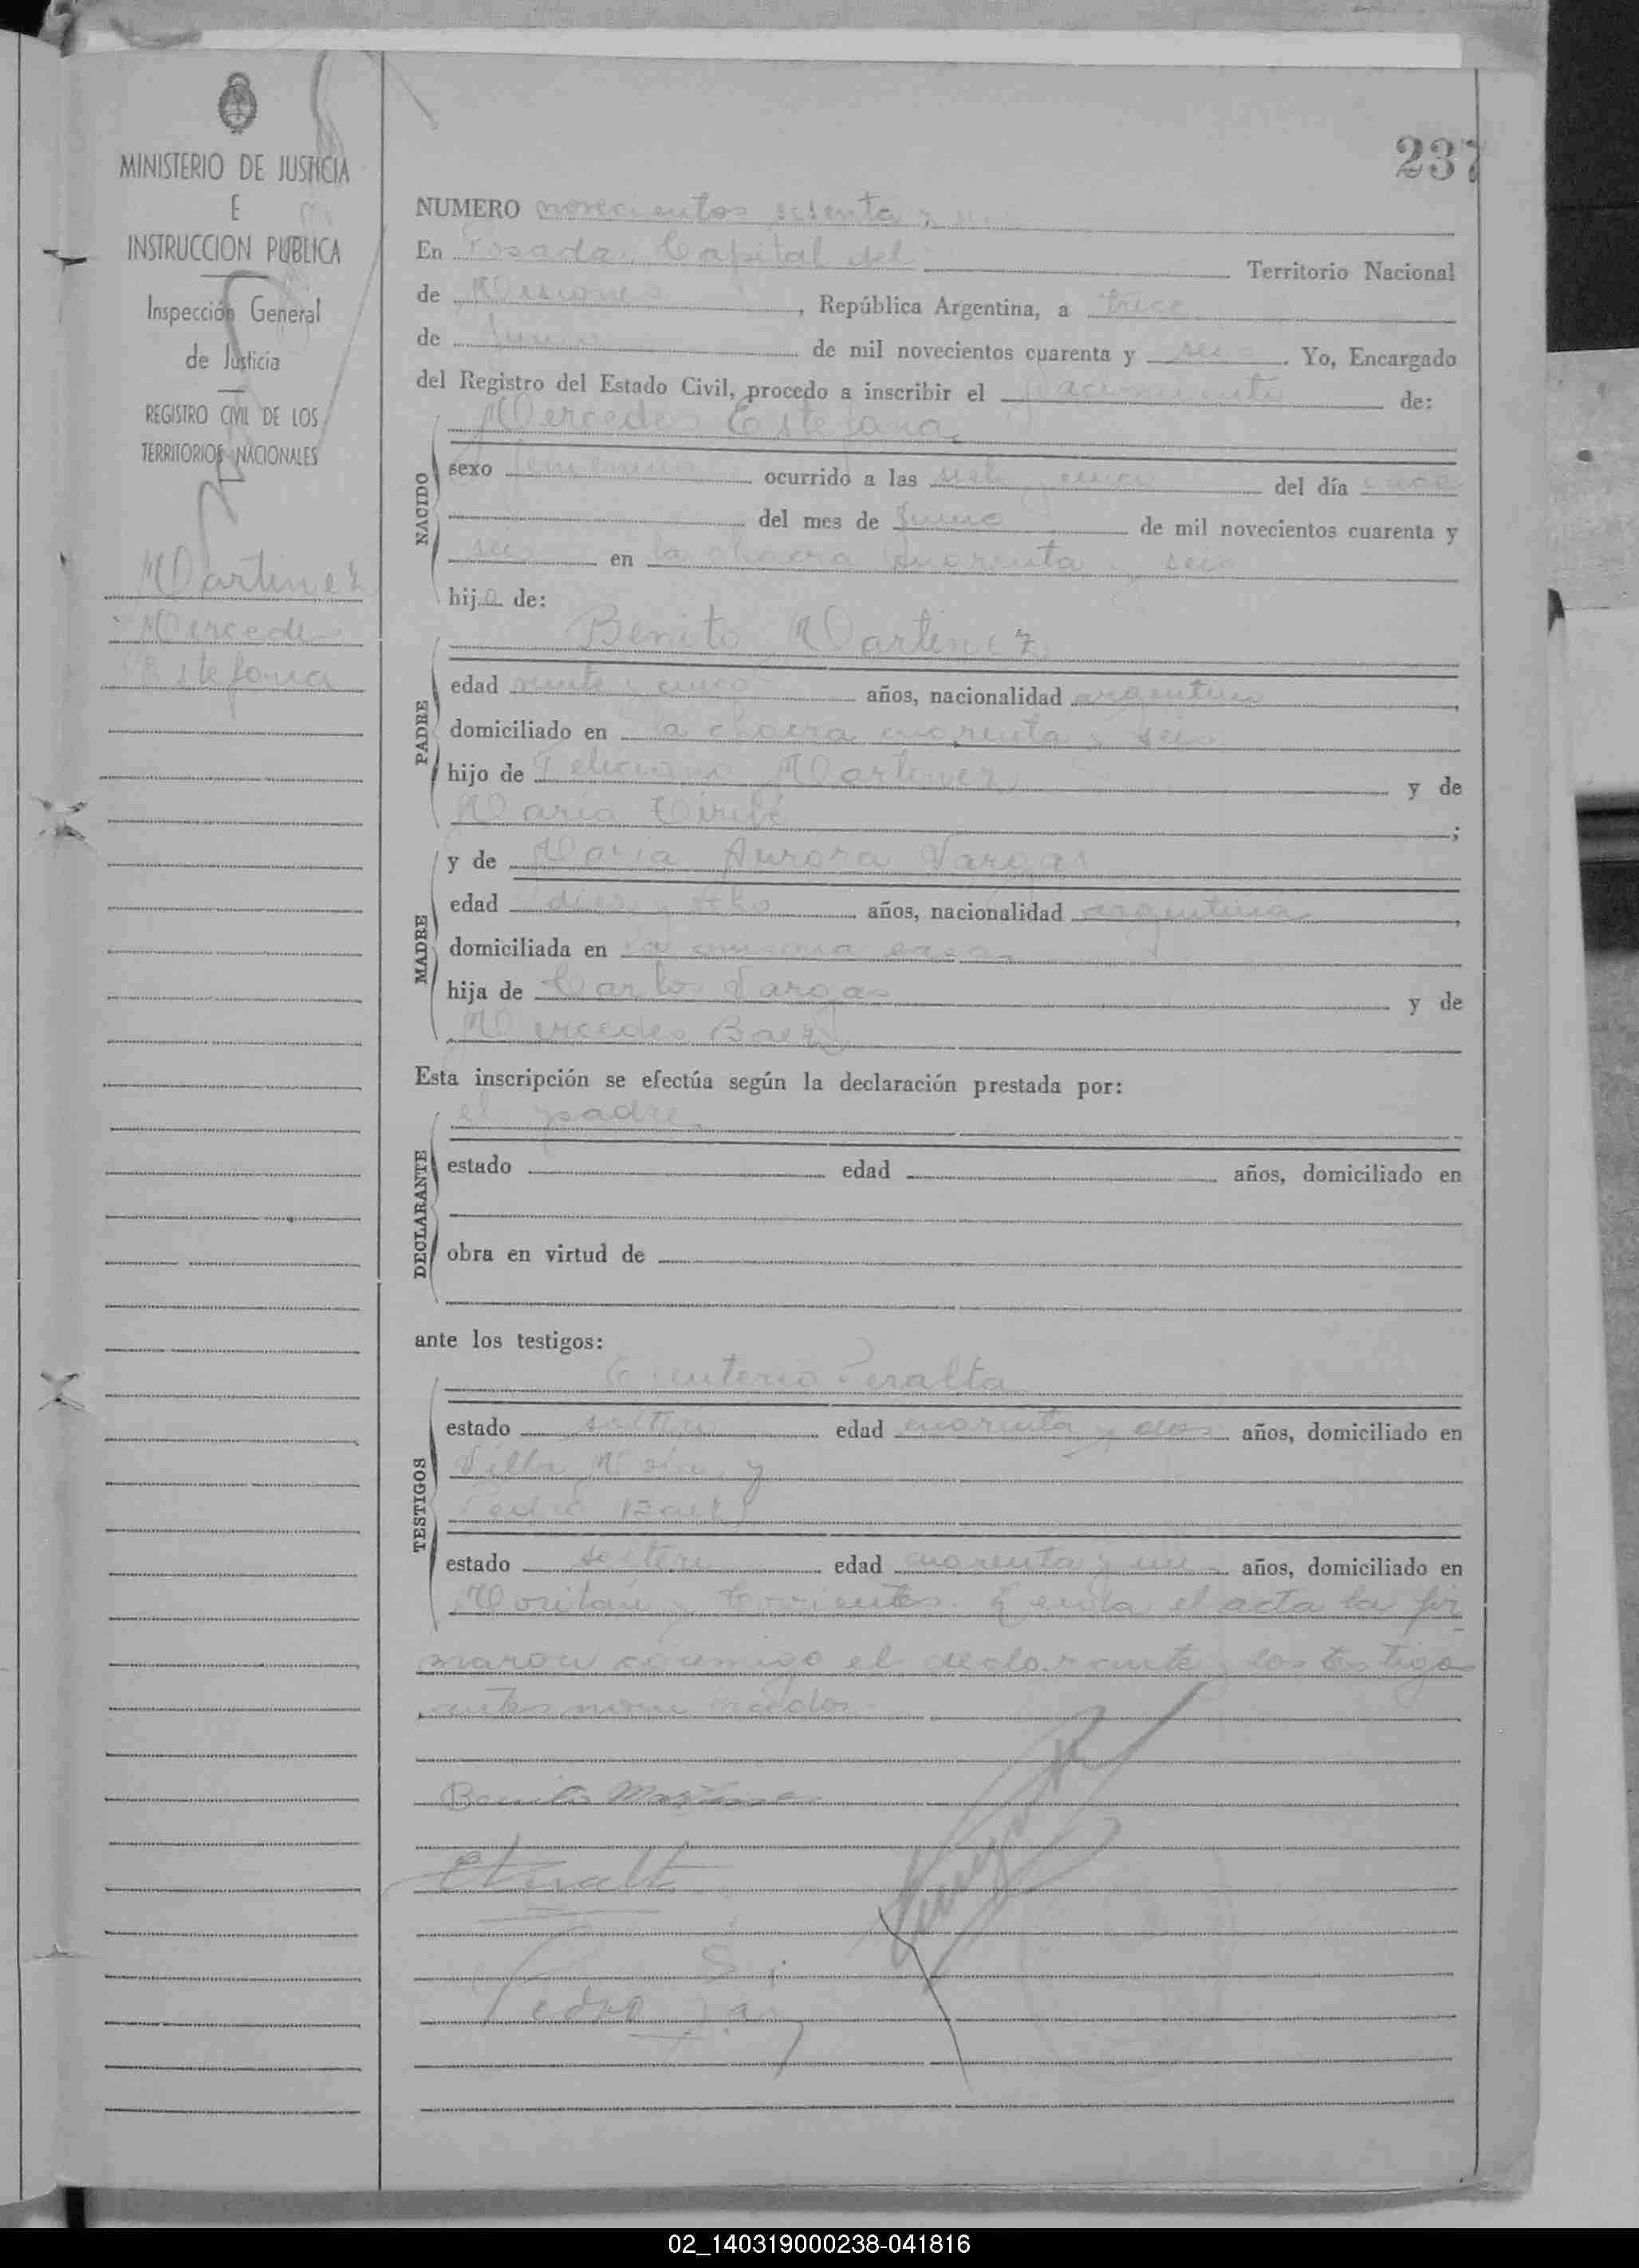 MINISTERIO DE JUSTICIA
E
INSTRUCCION PUBLICA
Inspección General
de Justicia
REGISTRO CIVIL DE LOS
TERRITORIOS NACIONALES
Martinez
Mercedes
Estefania
237
NUMERO novecientos sesenta y un
En Posadas Capital del Territorio Nacional
de Misiones, República Argentina, a trece
de Junio de mil novecientos cuarenta y seis. Yo, Encargado
del Registro del Estado Civil, procedo a inscribir el nacimiento de:
Mercedes Estefania
NACIDO
sexo femenino ocurrido a las siete y cinco del día once
del mes de Junio de mil novecientos cuarenta y
seis en la chacra cuarenta y seis
hija de:
Benito Martinez
PADRE
edad veinte y cinco años, nacionalidad argentino,
domiciliado en la chacra cuarenta y seis
hijo de Feliciano Martinez y de
Maria ;
y de Maria Aurora Vargas
MADRE
edad diez y ocho años, nacionalidad argentina,
domiciliada en la misma casa
hija de Carlos Vargas y de
Mercedes Baez
Esta inscripción se efectúa según la declaración prestada por:
el padre
DECLARANTE
estado edad años, domiciliado en
obra en virtud de
ante los testigos:
Peralta
TESTIGOS
estado soltero edad cuarenta y dos años, domiciliado en
Villa y
Pedro Baez
estado soltero edad cuarenta y un años, domiciliado en
y Corrientes. Leida el acta la fir
maron conmigo el declarante y los testigos
antes nombrados
Benito Martinez
E Peralta
Pedro
02_140319000238-041816